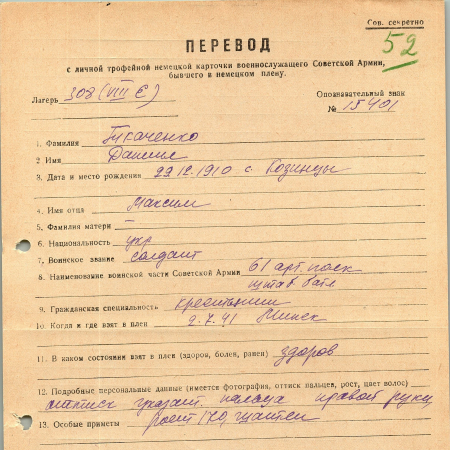 Сов. секретно
52
ПЕРЕВОД
с личной трофейной немецкой карточки военнослужащего Советской Армии,
бывшего в немецком плену.
Лагерь 308 (VIII E)
Опознавательный знак
№ 15401
1. Фамилия Ткаченко
2 Имя Даниил
3. Дата и место рождения 22 12.1910 с. Козинцы
4. Имя отца Максим
5. Фамилия матери —
6. Национальность укр
7. Воинское звание солдат
8. Наименование воинской части Советской Армии 61 арт. полк
штаб. бат.
9. Гражданская специальность крестьянин
10. Когда и где взят в плен 2.7.41 Минск
11. В каком состоянии взят в плен (здоров, болен, ранен) здоров
12. Подробные персональные данные (имеется фотография, оттиск пальцев, рост, цвет волос)
указат. пальца правой руки,
13. Особые приметы рост 170,